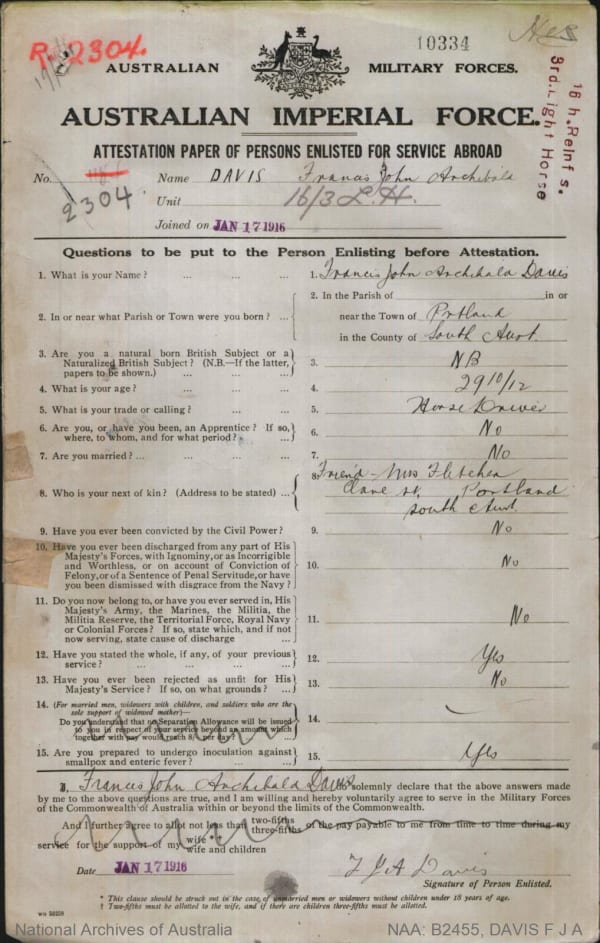 R. 2304.
10334
AUSTRALIAN MILITARY FORCES.
16th. Reinfs.
3rd. Light Horse
AUSTRALIAN IMPERIAL FORCE.
ATTESTATION PAPER OF PERSONS ENLISTED FOR SERVICE ABROAD
No. 2304 Name DAVIS Francis John Archibald
Unit 16/3 L.H.
Joined on JAN 17 1916
Questions to be put to the Person Enlisting before Attestation.
1. What is your Name? ... ... ... 1. Francis John Archibald Davis
2. In or near what Parish or Town were you born? ... 2. In the Parish of in or
near the Town of Portland
in the County of South Aust.
3. Are you a natural born British Subject or a
Naturalized British Subject? (N.B.—If the latter,
papers to be shown.) ... ... 3. NB
4. What is your age? ... ... ... 4. 29 10/12
5. What is your trade or calling? ... ... 5. Horse Driver
6. Are you, or have you been, an Apprentice? If so,
where, to whom, and for what period? ... 6. No
7. Are you married? ... ... ... ... 7. No
8. Who is your next of kin? (Address to be stated) ... 8. Friend - Mrs Fletcher
Clare st. Portland
South Aust.
9. Have you ever been convicted by the Civil Power? 9. No
10. Have you ever been discharged from any part of His
Majesty's Forces, with Ignominy, or as Incorrigible
and Worthless, or on account of Conviction of
Felony, or of a Sentence of Penal Servitude, or have
you been dismissed with disgrace from the Navy? 10. No
11. Do you now belong to, or have you ever served in, His
Majesty's Army, the Marines, the Militia, the
Militia Reserve, the Territorial Force, Royal Navy
or Colonial Forces? If so, state which, and if not
now serving, state cause of discharge ... 11. No
12. Have you stated the whole, if any, of your previous
service? ... ... ... ... 12. Yes
13. Have you ever been rejected as unfit for His
Majesty's Service? If so, on what grounds? ... 13. No
14. (For married men, widowers with children, and soldiers who are the
sole support of widowed mother)—
Do you understand that no Separation Allowance will be issued
to you in respect of your service beyond an amount which
together with pay would reach 8/- per day? ... 14. —
15. Are you prepared to undergo inoculation against
smallpox and enteric fever? ... ... 15. Yes
I, Francis John Archibald Davis do solemnly declare that the above answers made
by me to the above questions are true, and I am willing and hereby voluntarily agree to serve in the Military Forces
of the Commonwealth of Australia within or beyond the limits of the Commonwealth.
And I further agree to allot not less than two-fifths
three-fifths of the pay payable to me from time to time during my
service for the support of my wife †
wife and children
Date JAN 17 1916 F J A Davis
Signature of Person Enlisted.
* This clause should be struck out in the case of unmarried men or widowers without children under 18 years of age.
† Two-fifths must be allotted to the wife, and if there are children three-fifths must be allotted.
National Archives of Australia NAA: B2455, DAVIS F J A